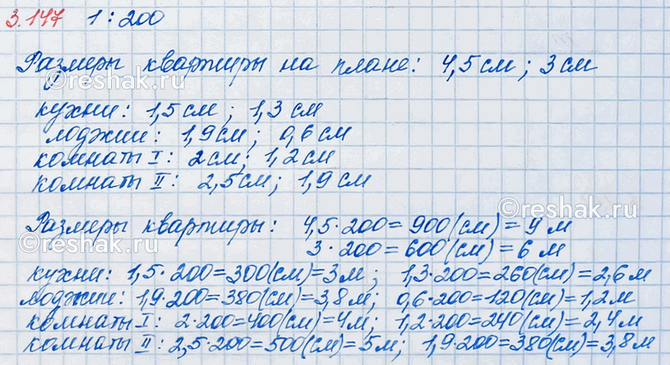 3.147 1 : 200
Размеры квартиры на плане: 4,5 см ; 3 см
кухни: 1,5 см ; 1,3 см
лоджии: 1,9 см ; 0,6 см
комнаты I : 2 см ; 1,2 см
комнаты II : 2,5 см ; 1,9 см
Размеры квартиры: 4,5 · 200 = 900 (см) = 9 м
3 · 200 = 600 (см) = 6 м
кухни: 1,5 · 200 = 300 (см) = 3 м ; 1,3 · 200 = 260 (см) = 2,6 м
лоджии: 1,9 · 200 = 380 (см) = 3,8 м ; 0,6 · 200 = 120 (см) = 1,2 м
комнаты I : 2 · 200 = 400 (см) = 4 м ; 1,2 · 200 = 240 (см) = 2,4 м
комнаты II : 2,5 · 200 = 500 (см) = 5 м ; 1,9 · 200 = 380 (см) = 3,8 м
©reshak.ru